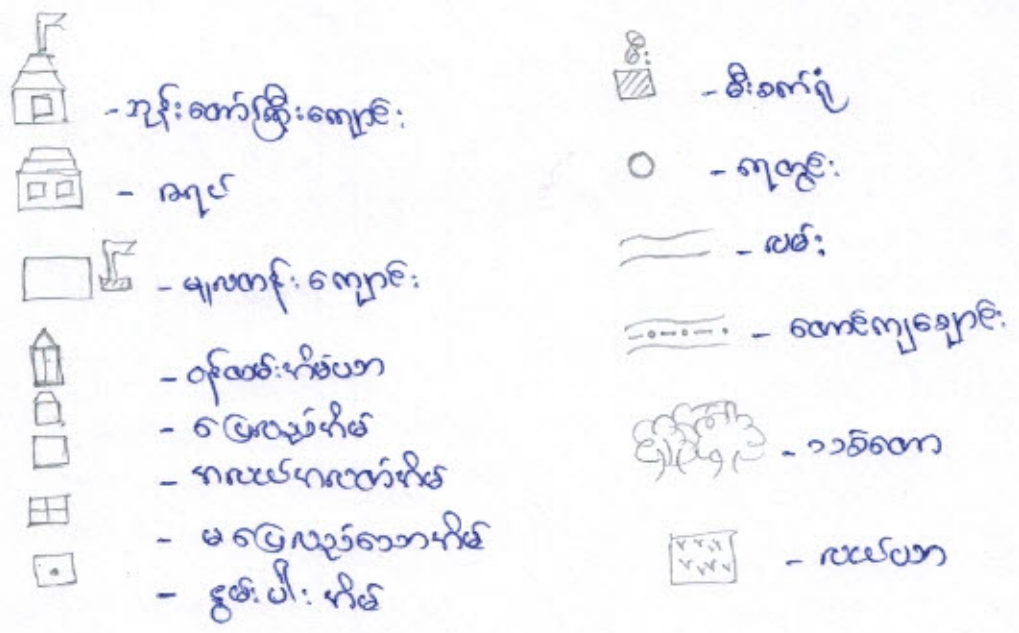 - ဘုန်းတော်ကြီးကျောင်း
- ဇရပ်
- မူလတန်းကျောင်း
- ဝန်ထမ်းအိမ်ယာ
- ပြေလည်အိမ်
- အလယ်အလတ်အိမ်
- မပြေလည်သောအိမ်
- နွမ်းပါးအိမ်
မီး
- မီးစက်ရုံ
- ရေတွင်း
- လမ်း
- တောင်ကျချောင်း
- သစ်တော
- လယ်ယာ